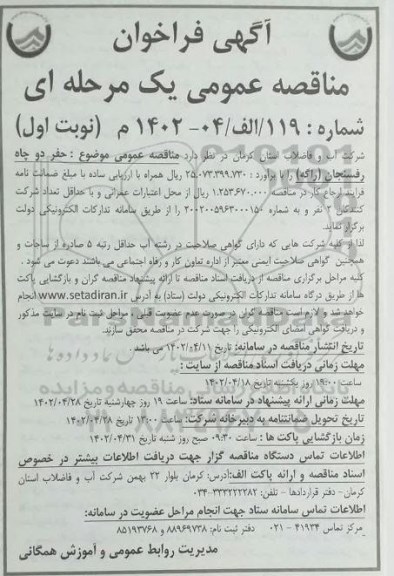 آگهی فراخوان
مناقصه عمومی یک مرحله ای
شماره : ۱۱۹/الف/۰۴- ۱۴۰۲ م (نوبت اول)
شرکت آب و فاضلاب استان کرمان در نظر دارد مناقصه عمومی موضوع : حفر دو چاه
رفسنجان (راکه) را با برآورد : ۲۵.۰۷۳.۳۹۹.۷۳۰ ریال همراه با ارزیابی ساده با مبلغ ضمانت نامه
فرایند ارجاع کار در مناقصه ۱.۲۵۳.۶۷۰.۰۰۰ ریال از محل اعتبارات عمرانی و با حداقل تعداد شرکت
کنندگان نفر و به شماره ۲۰۰۲۰۰۵۹۶۳۰۰۰۱۵۰ را از طریق سامانه تدارکات الکترونیکی دولت
برگزار نماید.
لذا از کلیه شرکت هایی که دارای گواهی صلاحیت در رشته آب حداقل رتبه ۵ صادره از ساجات و
همچنین گواهی صلاحیت ایمنی معتبر از اداره تعاون کار و رفاه اجتماعی می باشند دعوت می شود .
کلیه مراحل برگزاری مناقصه از دریافت اسناد مناقصه تا ارائه پیشنهاد مناقصه گران و بازگشایی پاکت
ها از طریق درگاه سامانه تدارکات الکترونیکی دولت (ستاد) به آدرس www.setadiran.ir انجام
خواهد شد و لازم است مناقصه گران در صورت عدم عضویت قبلی، مراحل ثبت نام در سایت مذکور
و دریافت گواهی امضای الکترونیکی را جهت شرکت در مناقصه محقق سازند.
تاریخ انتشار مناقصه در سامانه: تاریخ ۱۴۰۲/۰۴/۱۱ می باشد .
مهلت زمانی دریافت اسناد مناقصه از سایت :
ساعت ۱۹:۰۰ روز یکشنبه تاریخ ۱۴۰۲/۰۴/۱۸
مهلت زمانی ارائه پیشنهاد در سامانه ستاد: ساعت ۱۹ روز چهارشنبه تاریخ ۱۴۰۲/۰۴/۲۸
تاریخ تحویل ضمانتنامه به دبیرخانه شرکت: ساعت تاریخ ۱۴۰۲/۰۴/۲۸
زمان بازگشایی پاکت ها : ساعت ۰۹:۳۰ صبح روز شنبه تاریخ ۱۴۰۲/۰۴/۳۱
اطلاعات تماس دستگاه مناقصه گزار جهت دریافت اطلاعات بیشتر در خصوص
اسناد مناقصه و ارائه پاکت الف:آدرس: کرمان بلوار ۲۲ بهمن شرکت آب و فاضلاب استان
کرمان - دفتر قراردادها - تلفن: ۳۳۲۲۲۲۸۲-۰۳۴
اطلاعات تماس سامانه ستاد جهت انجام مراحل عضویت در سامانه:
مرکز تماس ۴۱۹۳۴ - ۰۲۱ دفتر ثبت نام: ۸۸۹۶۹۷۳۸ و ۸۵۱۹۳۷۶۸
مدیریت روابط عمومی و آموزش همگانی